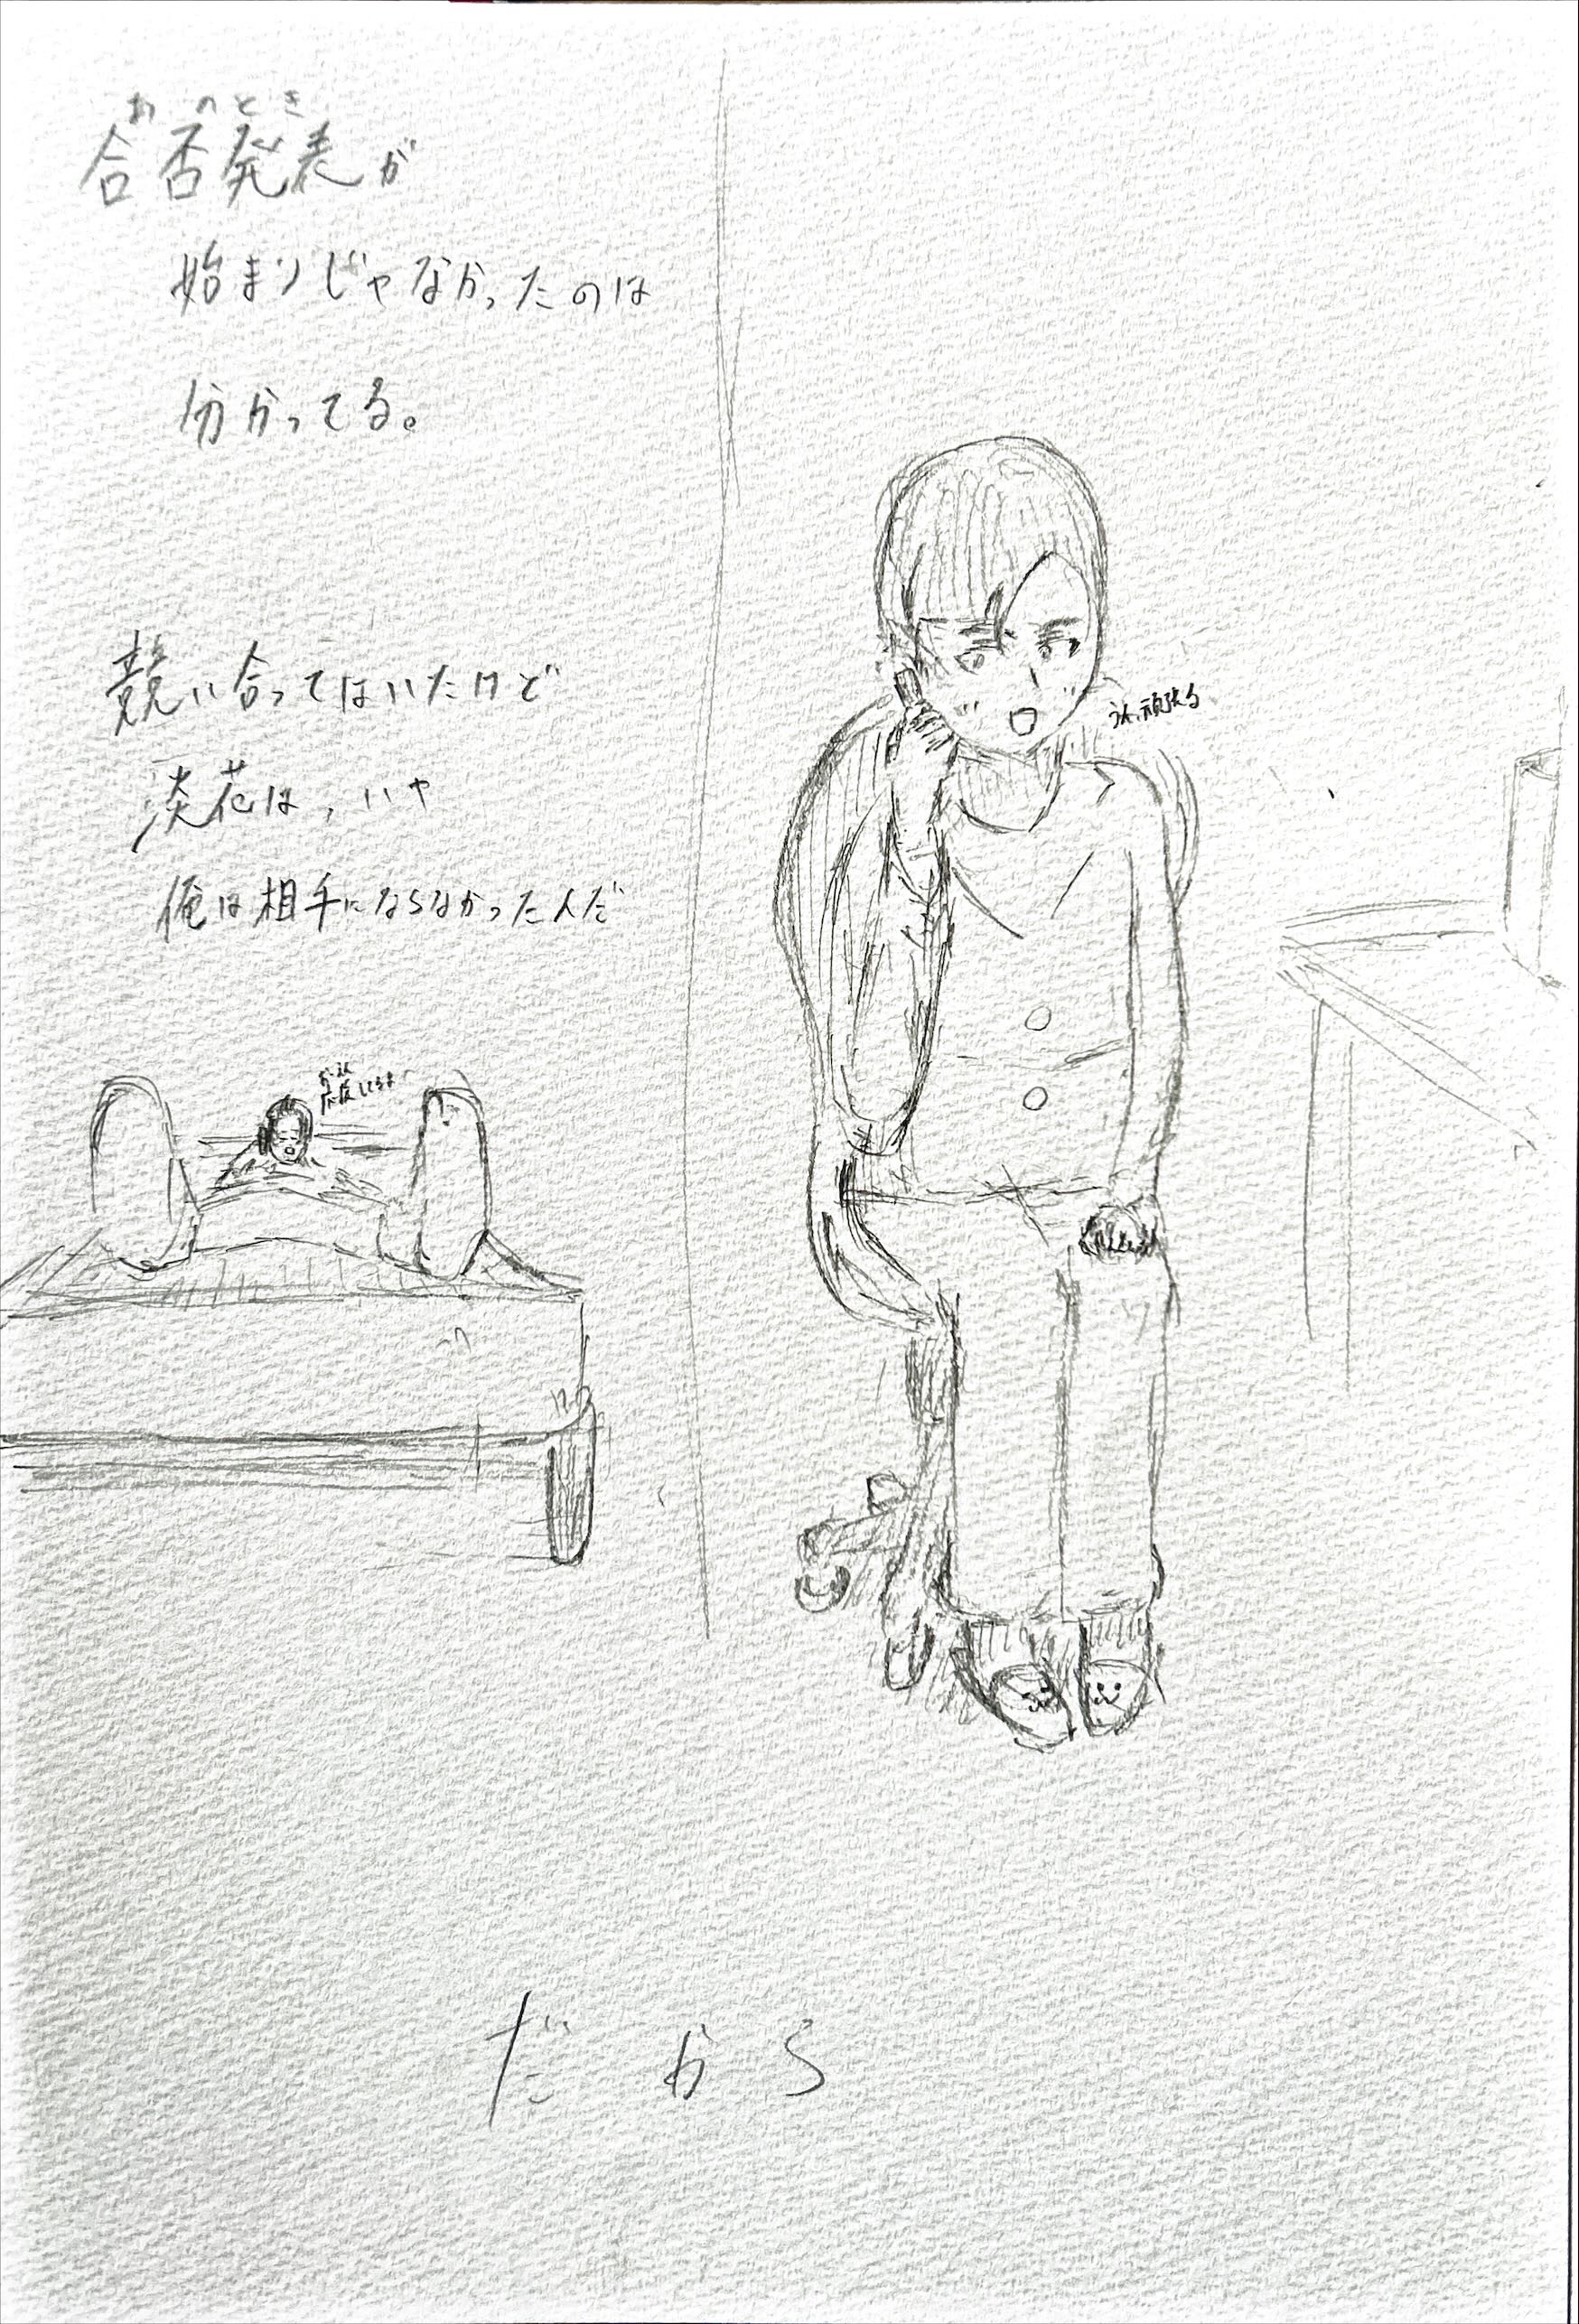 あのとき
合否発表が
始まりじゃなかったのは
分かってる。
競い合ってはいたけど
淡花は、いや
俺は相手にならなかったんだ
うん、頑張る
だから